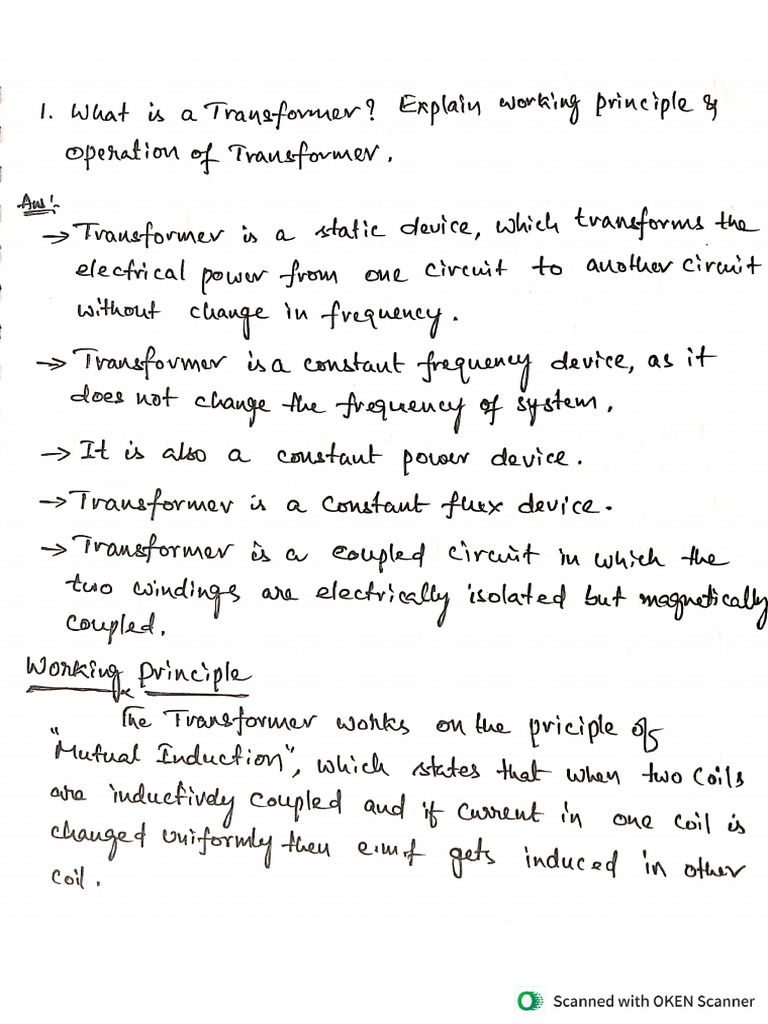 1. What is a Transformer? Explain working principle &
operation of Transformer.
Ans:-
→ Transformer is a static device, which transforms the
electrical power from one circuit to another circuit
without change in frequency.
→ Transformer is a constant frequency device, as it
does not change the frequency of system.
→ It is also a constant power device.
→ Transformer is a constant flux device.
→ Transformer is a coupled circuit in which the
two windings are electrically isolated but magnetically
coupled.
Working principle
The Transformer works on the priciple of
"Mutual Induction", which states that when two coils
are inductively coupled and if current in one coil is
changed uniformly then e.m.f gets induced in other
coil.
Scanned with OKEN Scanner